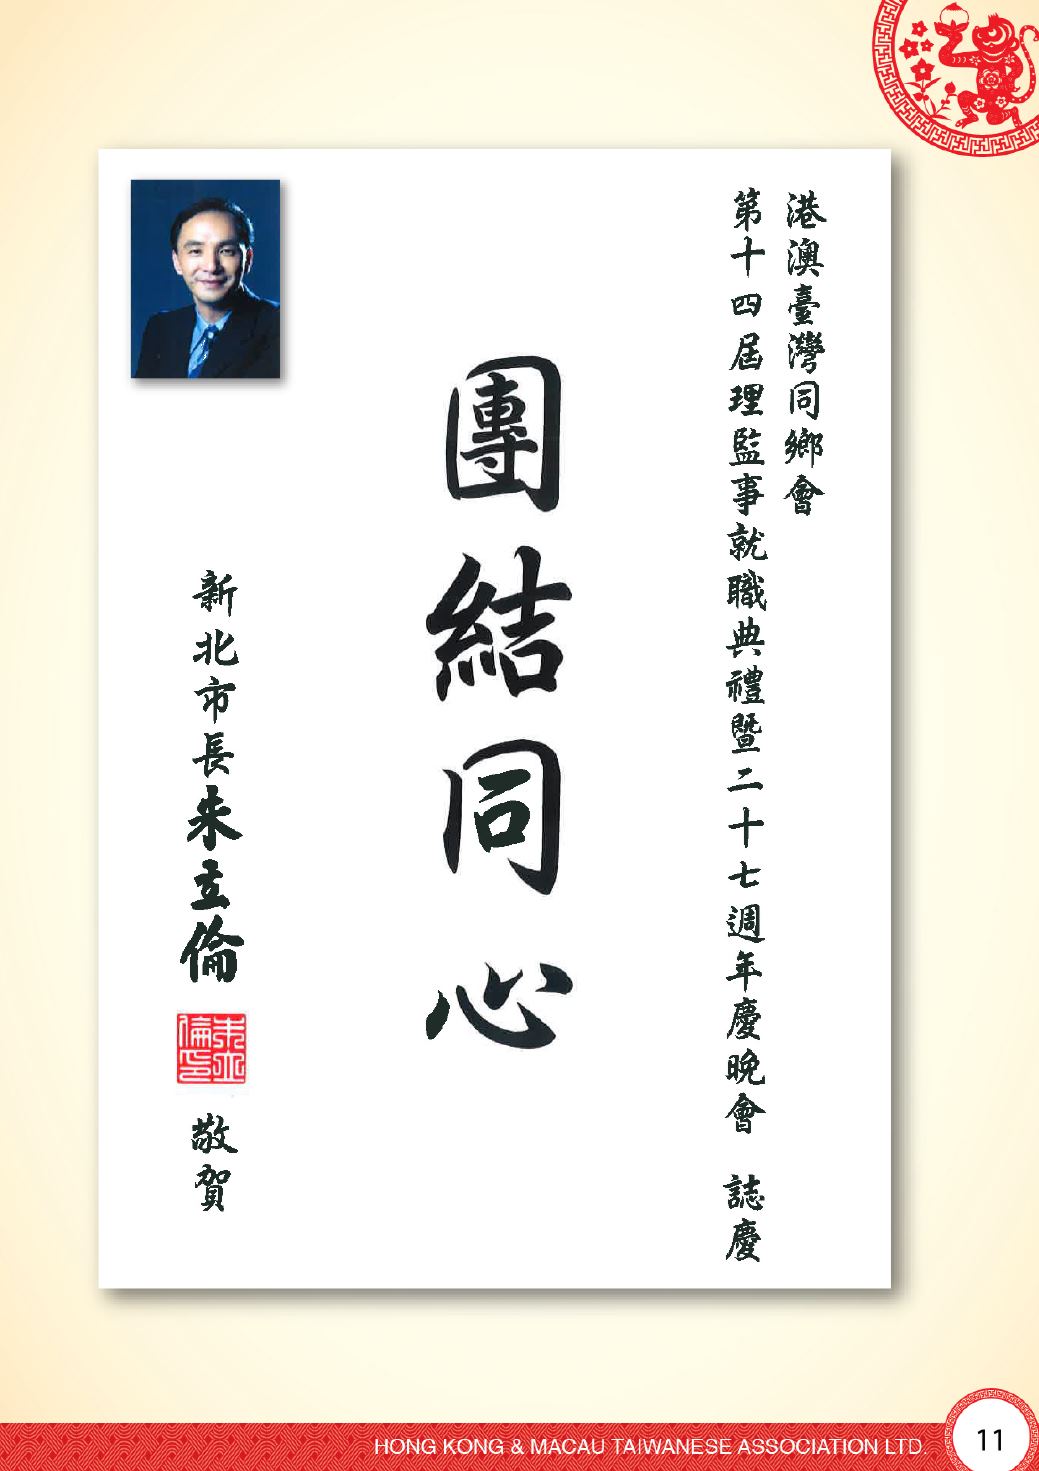 港澳臺灣同鄉會
第十四屆理監事就職典禮暨二十七週年慶晚會 誌慶
團結同心
新北市長朱立倫 敬賀
朱立倫印
HONG KONG & MACAU TAIWANESE ASSOCIATION LTD.
11